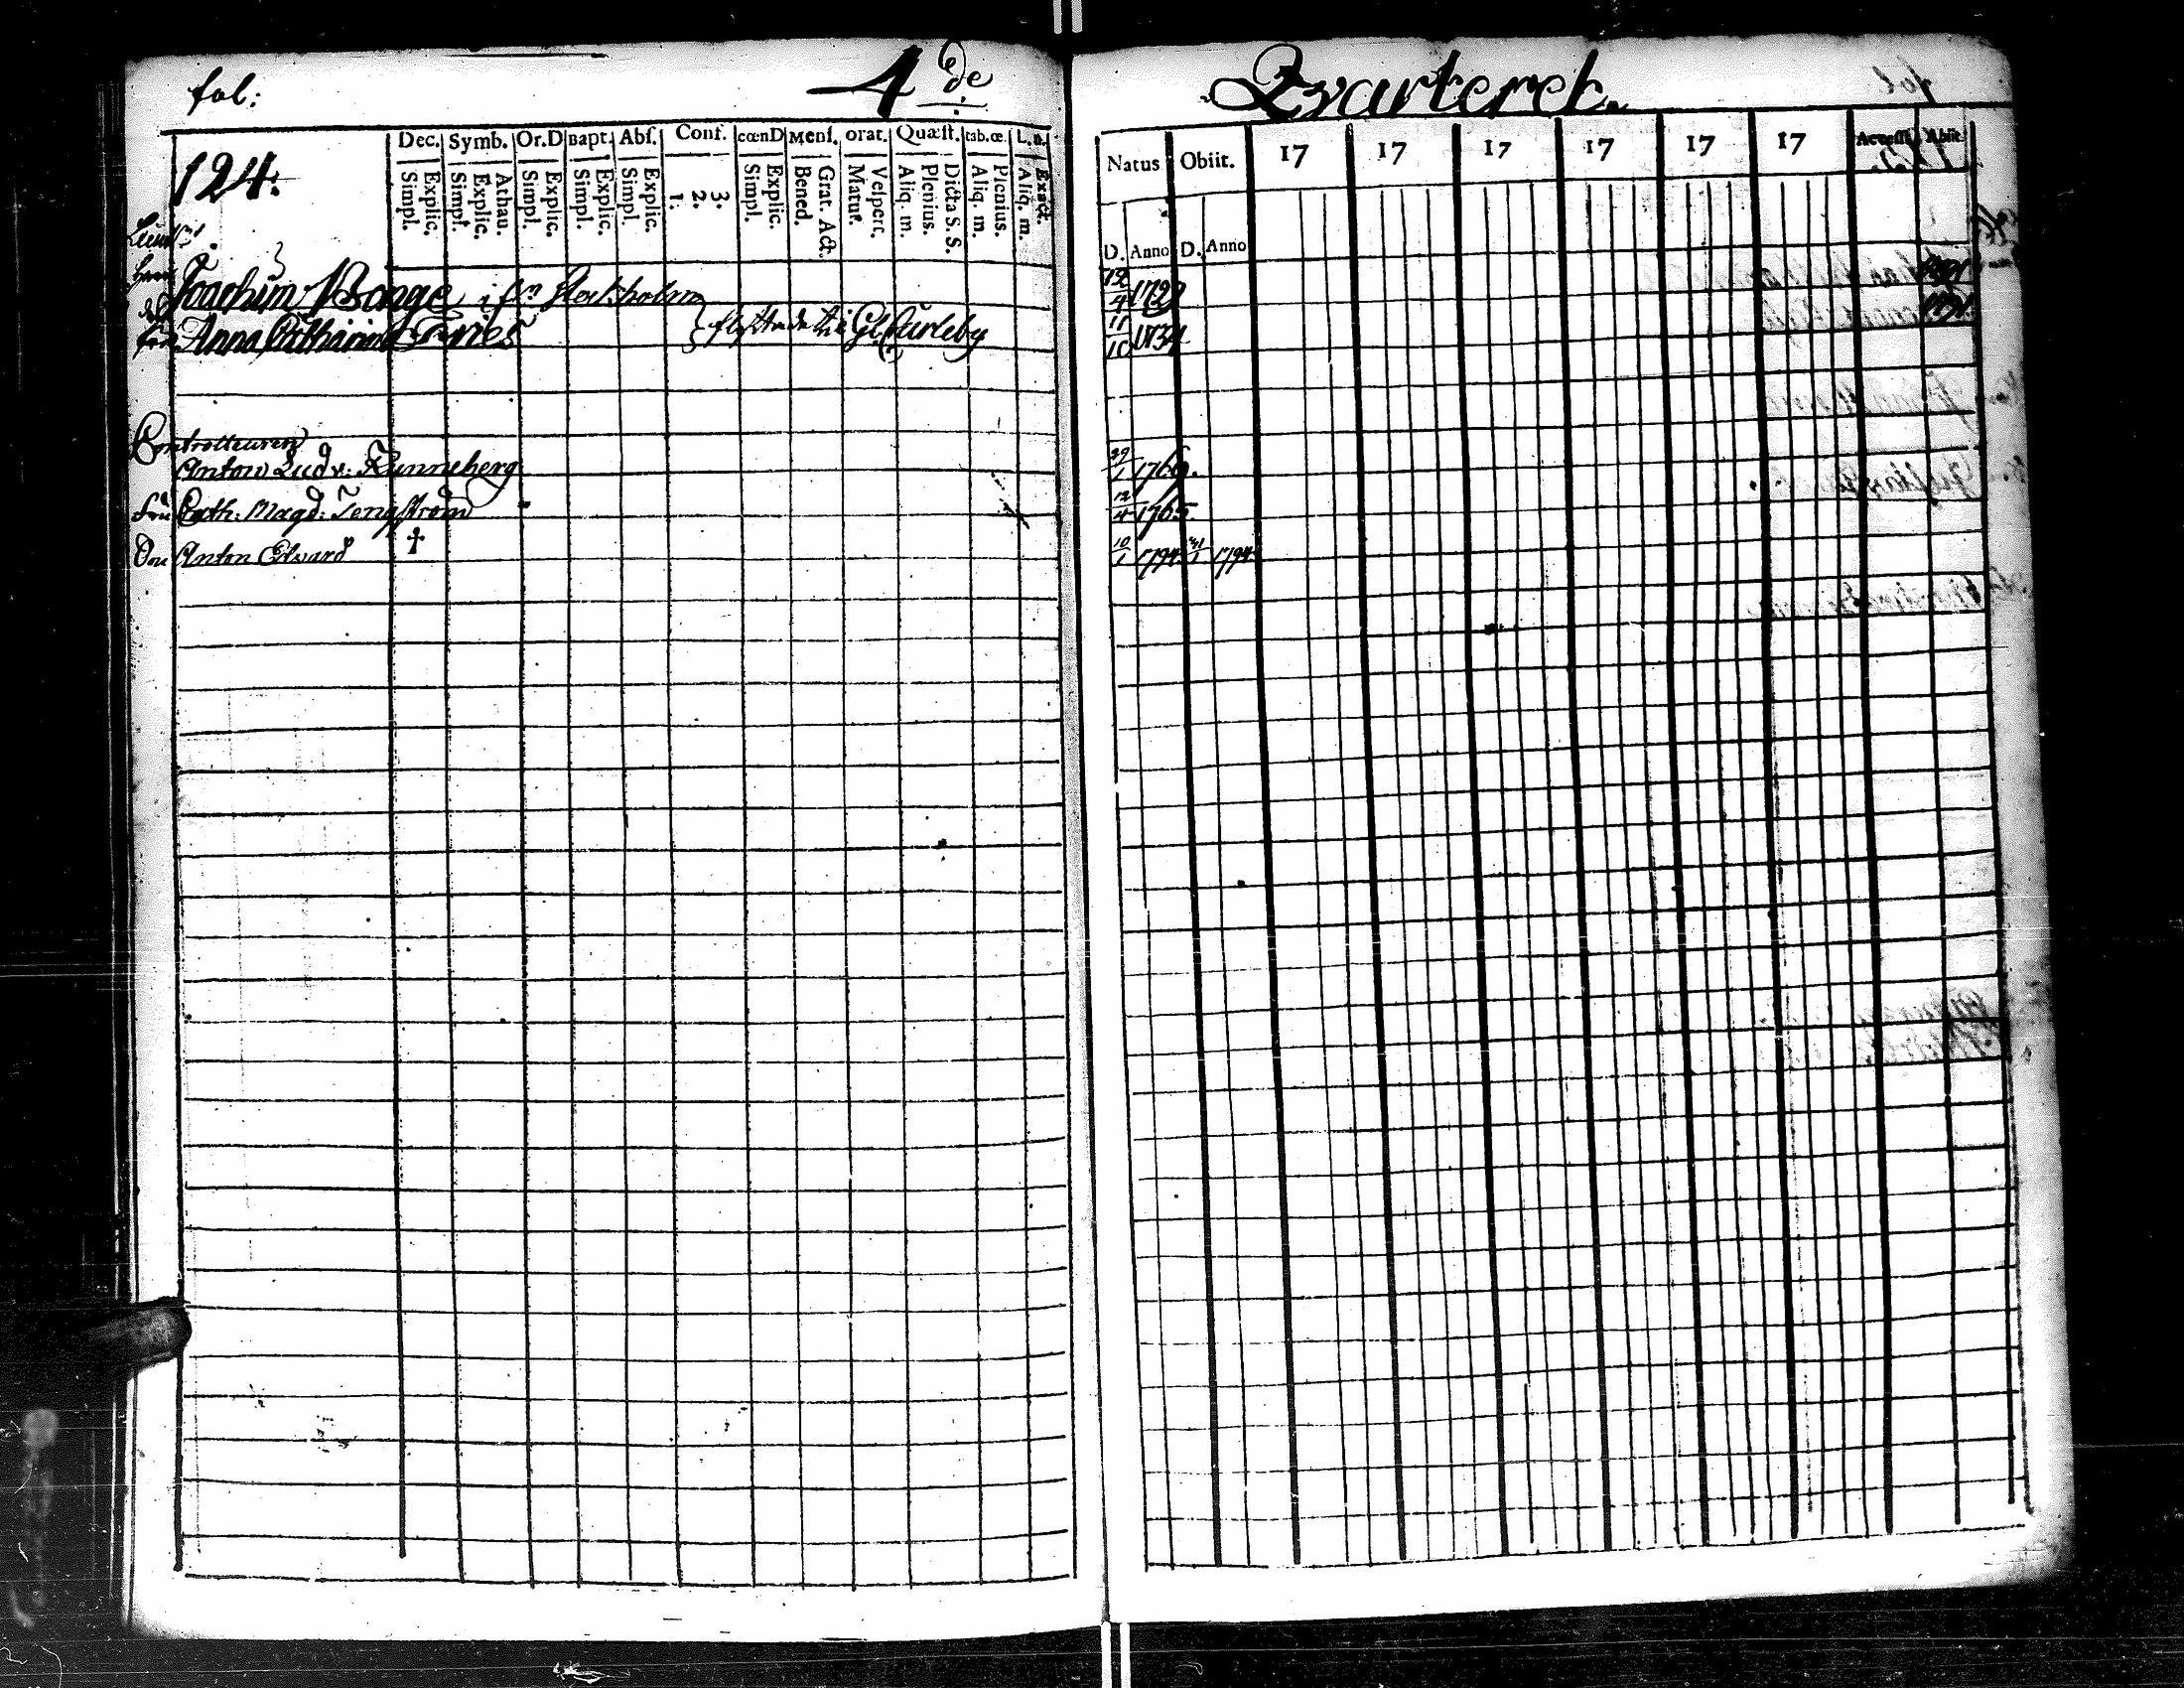 fol:
4de Qvarteret.
124.
Dec. Symb. Or.D Bapt. Abs. Conf. cœnD Mens. orat. Quæst. tab.œ. L.n.
Simpl. Explic. Simpl. Explic. Athan. Simpl. Explic. Simpl. Explic. Simpl. Explic. 1. 2. 3. Simpl. Explic. Bened. Grat. Act. Matut. Vesperr. Aliq. m. Plenius. Dicta S. S. Aliq. m. Plenius. Aliq. m. Exact.
Natus Obiit. 17 17 17 17 17 17 Accessit Abiit
D. Anno D. Anno
Joachim Bange i frn Stockholm 12/4 1729 1791
Fru Anna Catharina flyttade til Gl. Carleby 11/10 1734 1791
Controlleuren
Anton Ludv: Runneberg 29/1 1760.
Fru Cath: Magd: Tengström 12/4 1765.
Son Anton Edvard † 10/1 1794. 31/1 1794.